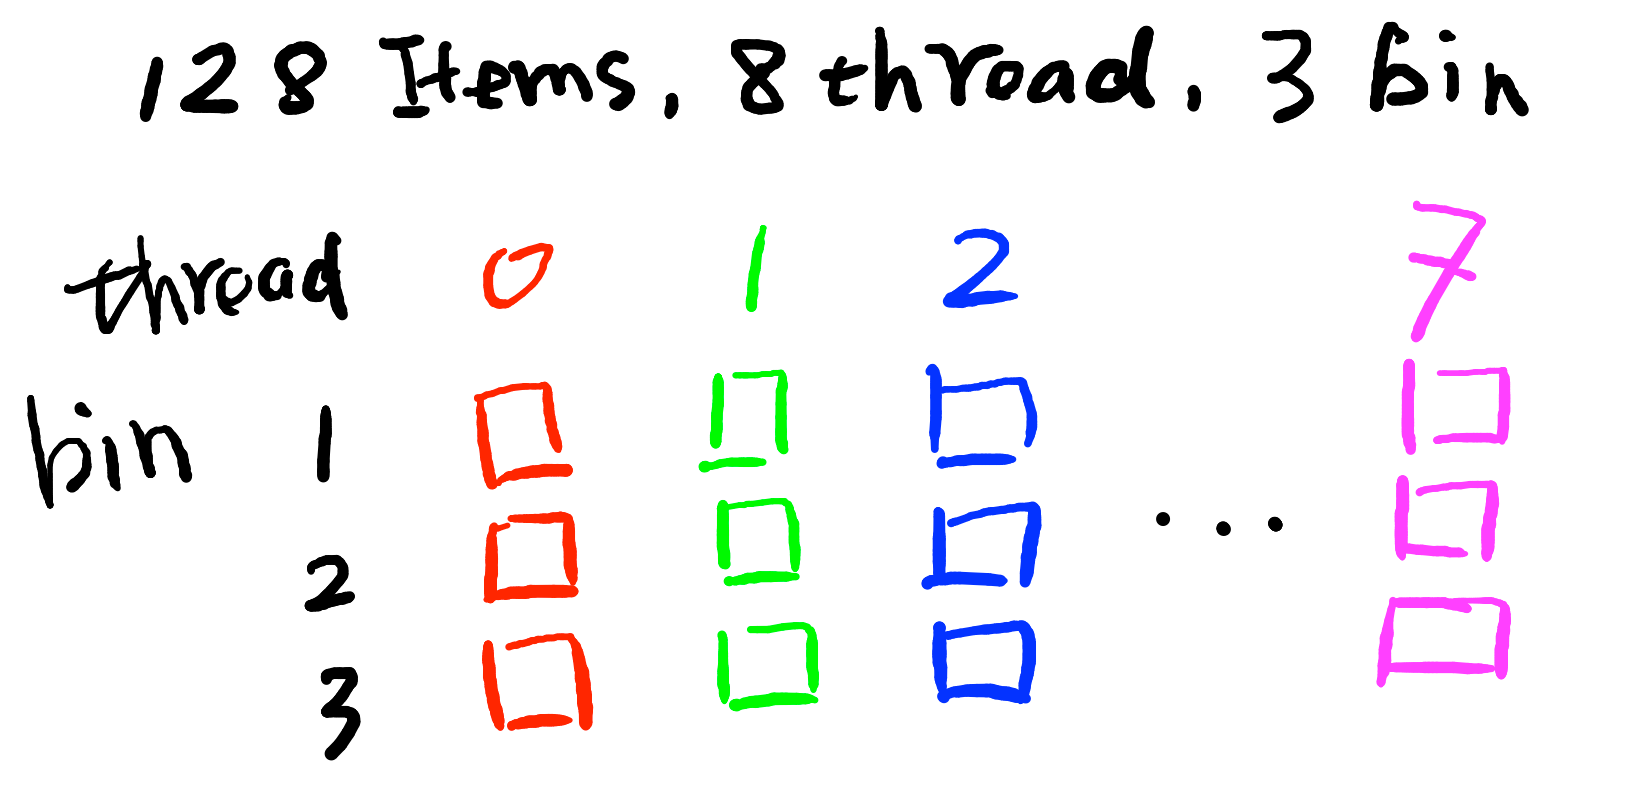 128 Items, 8 throad, 3 bin
throad 0 1 2 7
bin 1
...
2
3